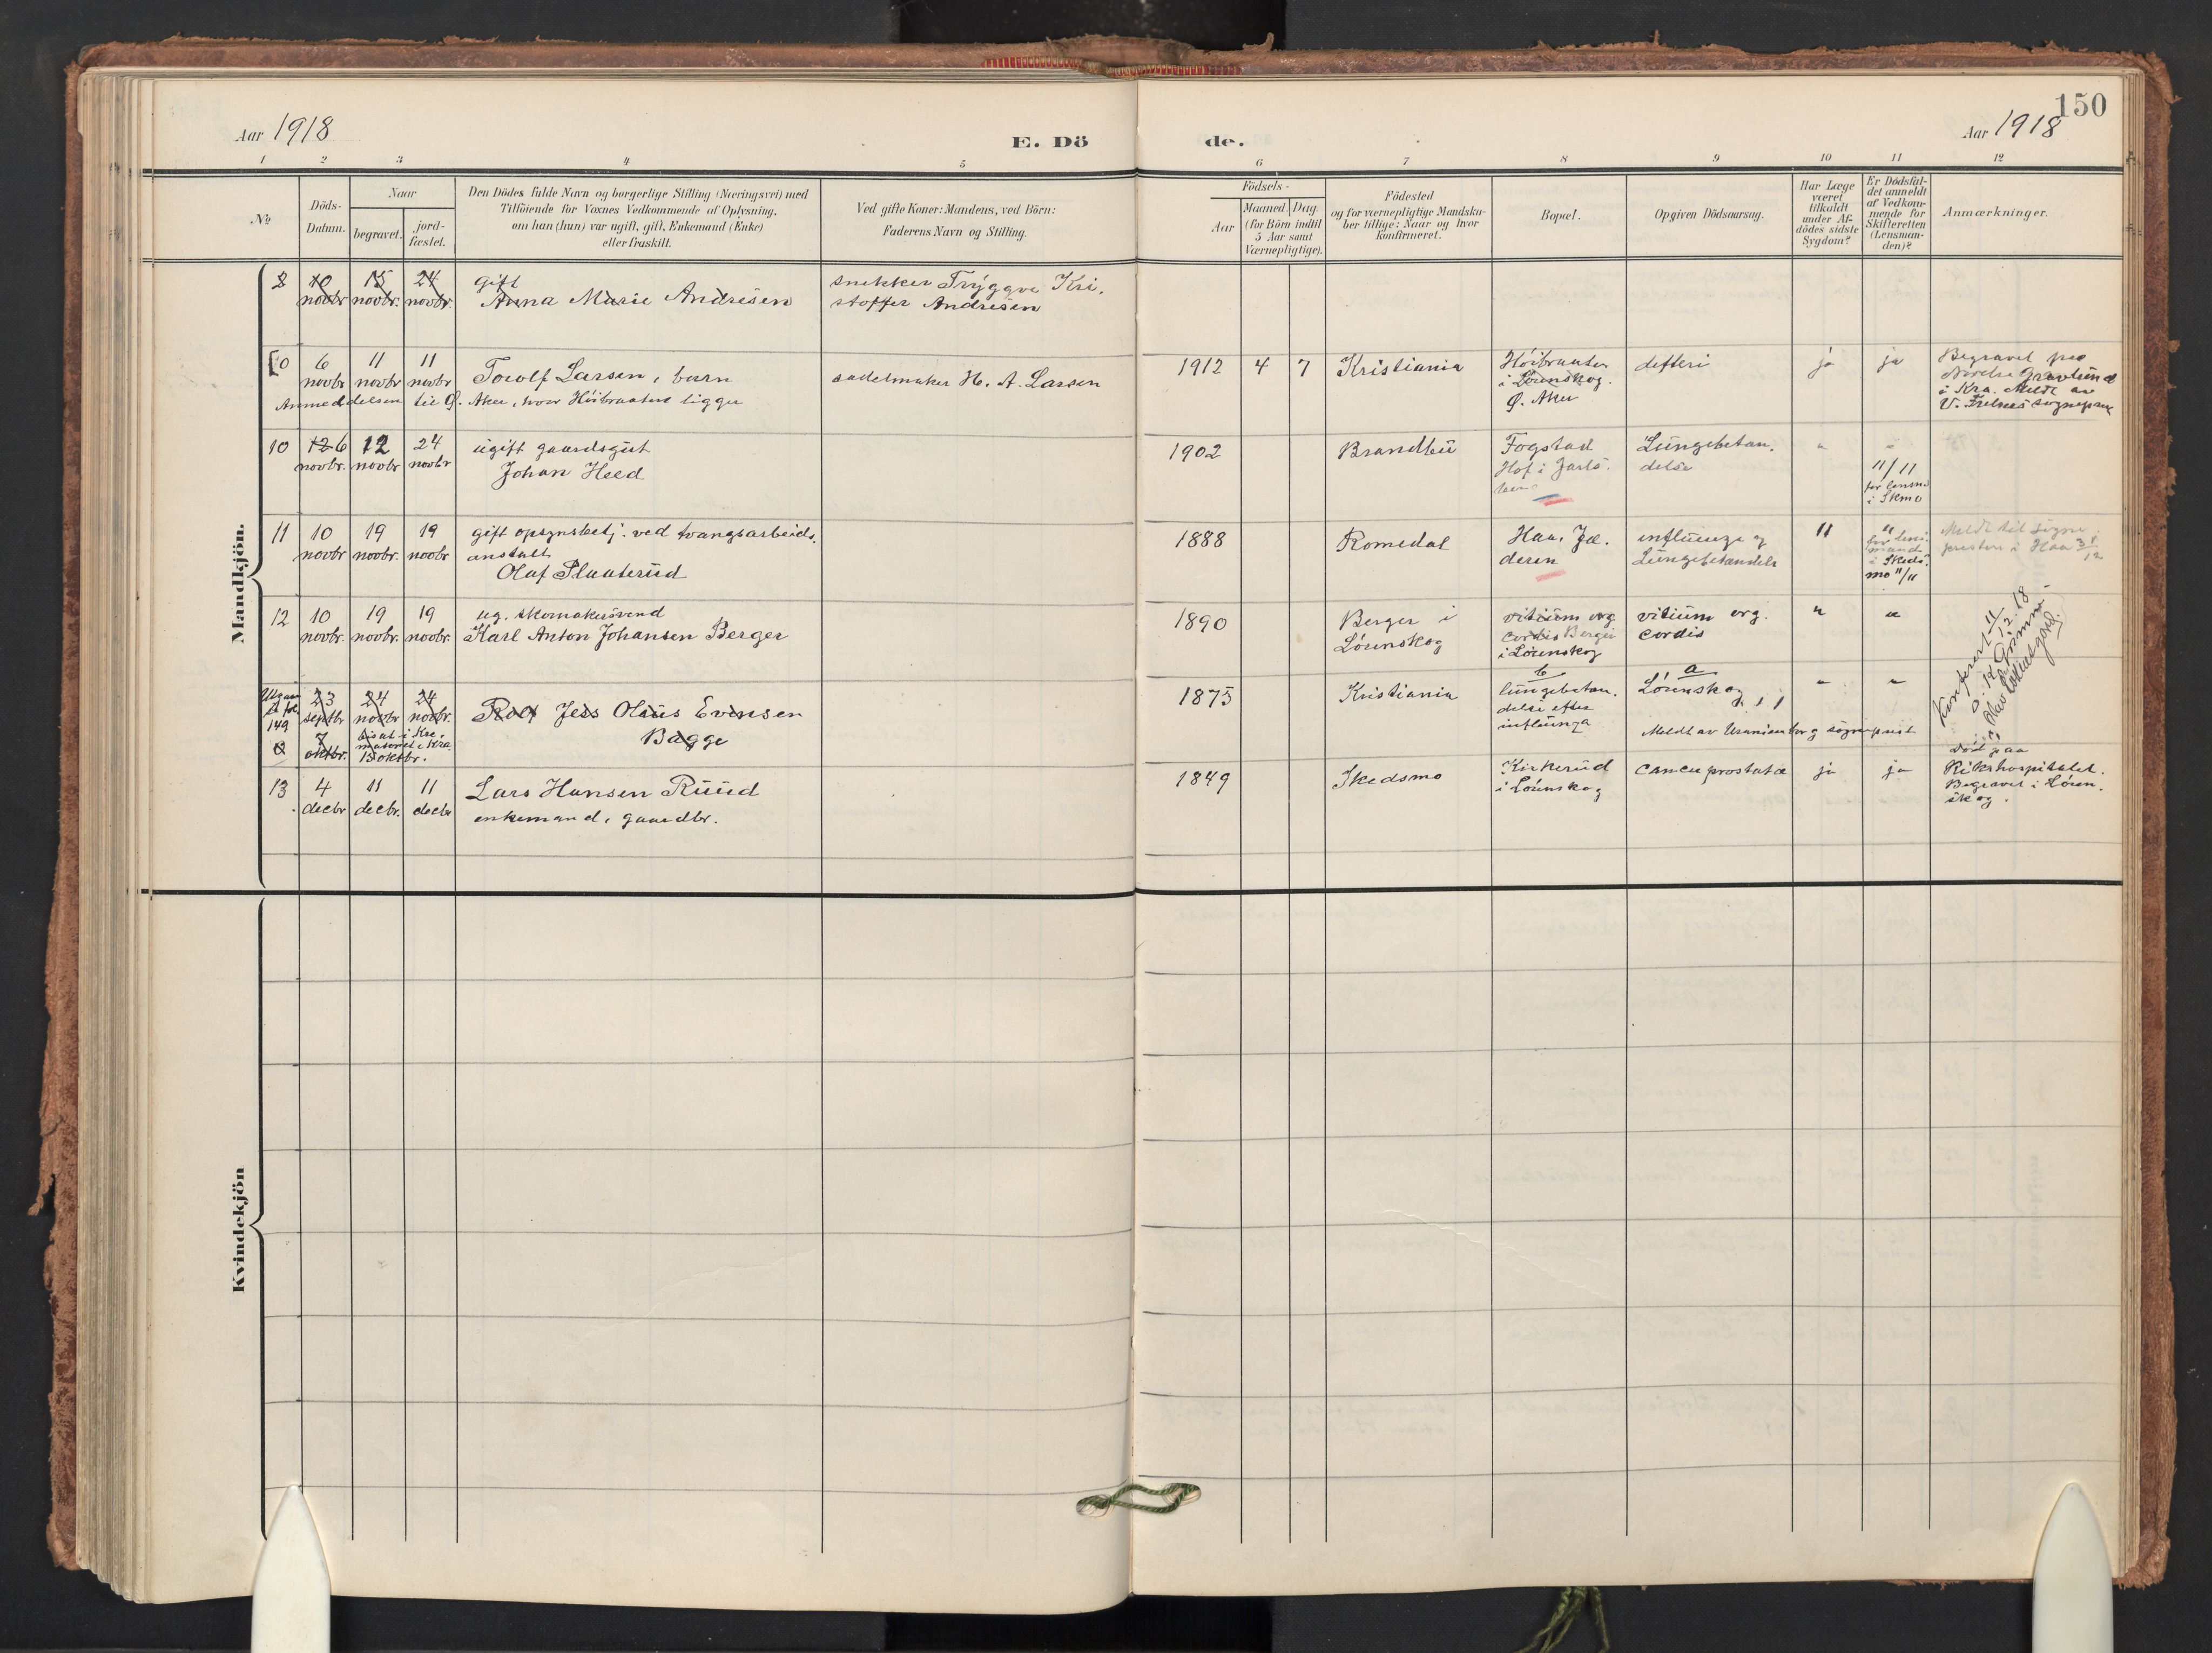 Aar 1918
E. Dö de.
Aar 1918
150
1 2 3 4 5 6 7 8 9 10 11 12
No
Döds-
Datum.
Naar
begravet.
jord-
fæstet.
Den Dödes fulde Navn og borgerlige Stilling (Næringsvei) med
Tilföiende for Voxnes Vedkommende af Oplysning,
om han (hun) var ugift, gift, Enkemand (Enke)
eller fraskilt.
Ved gifte Koner: Mandens, ved Börn:
Faderens Navn og Stilling.
Födsels-
Aar
Maaned. Dag.
(for Börn indtil
5 Aar samt
Værnepligtige).
Födested
og for værnepligtige Mandska-
ber tillige: Naar og hvor
konfirmeret.
Bopæl.
Opgiven Dödsaarsag.
Har Læge
været
tilkaldt
under Af-
dödes sidste
Sygdom?
Er Dödsfal-
det anmeldt
af Vedkom-
mende for
Skifteretten
(Lensman-
den)?
Anmærkninger.
Mandkjön.
8 10 15 24 gift snekker Tryggve Kri.
novbr novbr. novbr. Anna Marie Andresen stoffer Andresen
6 11 11 Torolf Larsen, barn sadelmaker H. A. Larsen 1912 4 7 Kristiania Höibraaten defteri ja ja Begravet paa
novbr novbr novbr i Lörenskog. Nordre Gravlund
Anmeddelsen til Ö. Aker, hvor Höibraaten ligger Ö. Aker i Kra. Meldt av
V. Frelsers sogneprest
10 12 6 12 24 ugift gaardsgut 1902 Brandbu Fogstad Lungebetæn. " "
novbr. novbr novbr Johan Heed Hof i Jarls. delse 11/11
for lensmd
i Skmo
11 10 19 19 gift opsynsbetj. ved tvangsarbeids. 1888 Romedal Haa, Jæ. influenza og " "
novbr novbr. novbr anstalt deren Lungebetændels
Olaf Plaaterud
for lens.
mand
i Skeds.
mo 11/11
Meldt til sogne.
presten i Haa 31/12
12 10 19 19 ug. skomakersvend 1890 Berger i vitium org vitium org. " "
novbr. novbr. novbr. Karl Anton Johansen Berger Lörenskog cordis Berger cordis
i Lörenskog
Konferert 11/12 18
Utgaar
149
23 24 24 Rolf Jess Olaus Evensen 1875 Kristiania b a " "
septbr novbr novbr. Bagge lungebetæn. Lörenskog
7 bisat i Kre. delse efter
oktbr. matoriet i Kra influenza Meldt av Uranienborg sogneprest
oktbr.
13 4 11 11 Lars Hansen Ruud 1849 Skedsmo Kirkerud cancer prostatæ ja ja Död paa
decbr decbr. decbr enkemand, gaardbr. i Lörenskog Rikshospitalet.
Begravet i Lören.
skog.
Kvindekjön